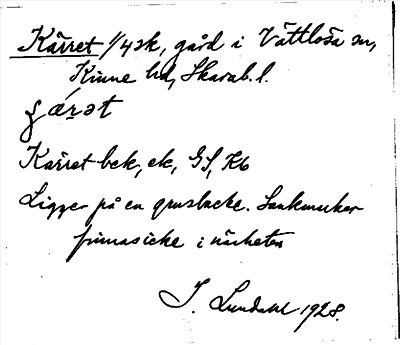 Kärret 1/4 sk, gård i Vättlösa sn,
Kinne hd, Skarab. l.
ɕá̱rət
Kärret bek, ek, GS, Kb
Ligger på en grusbacke. Sankmarker
finnas icke i närheten
I. Lundahl 1928.